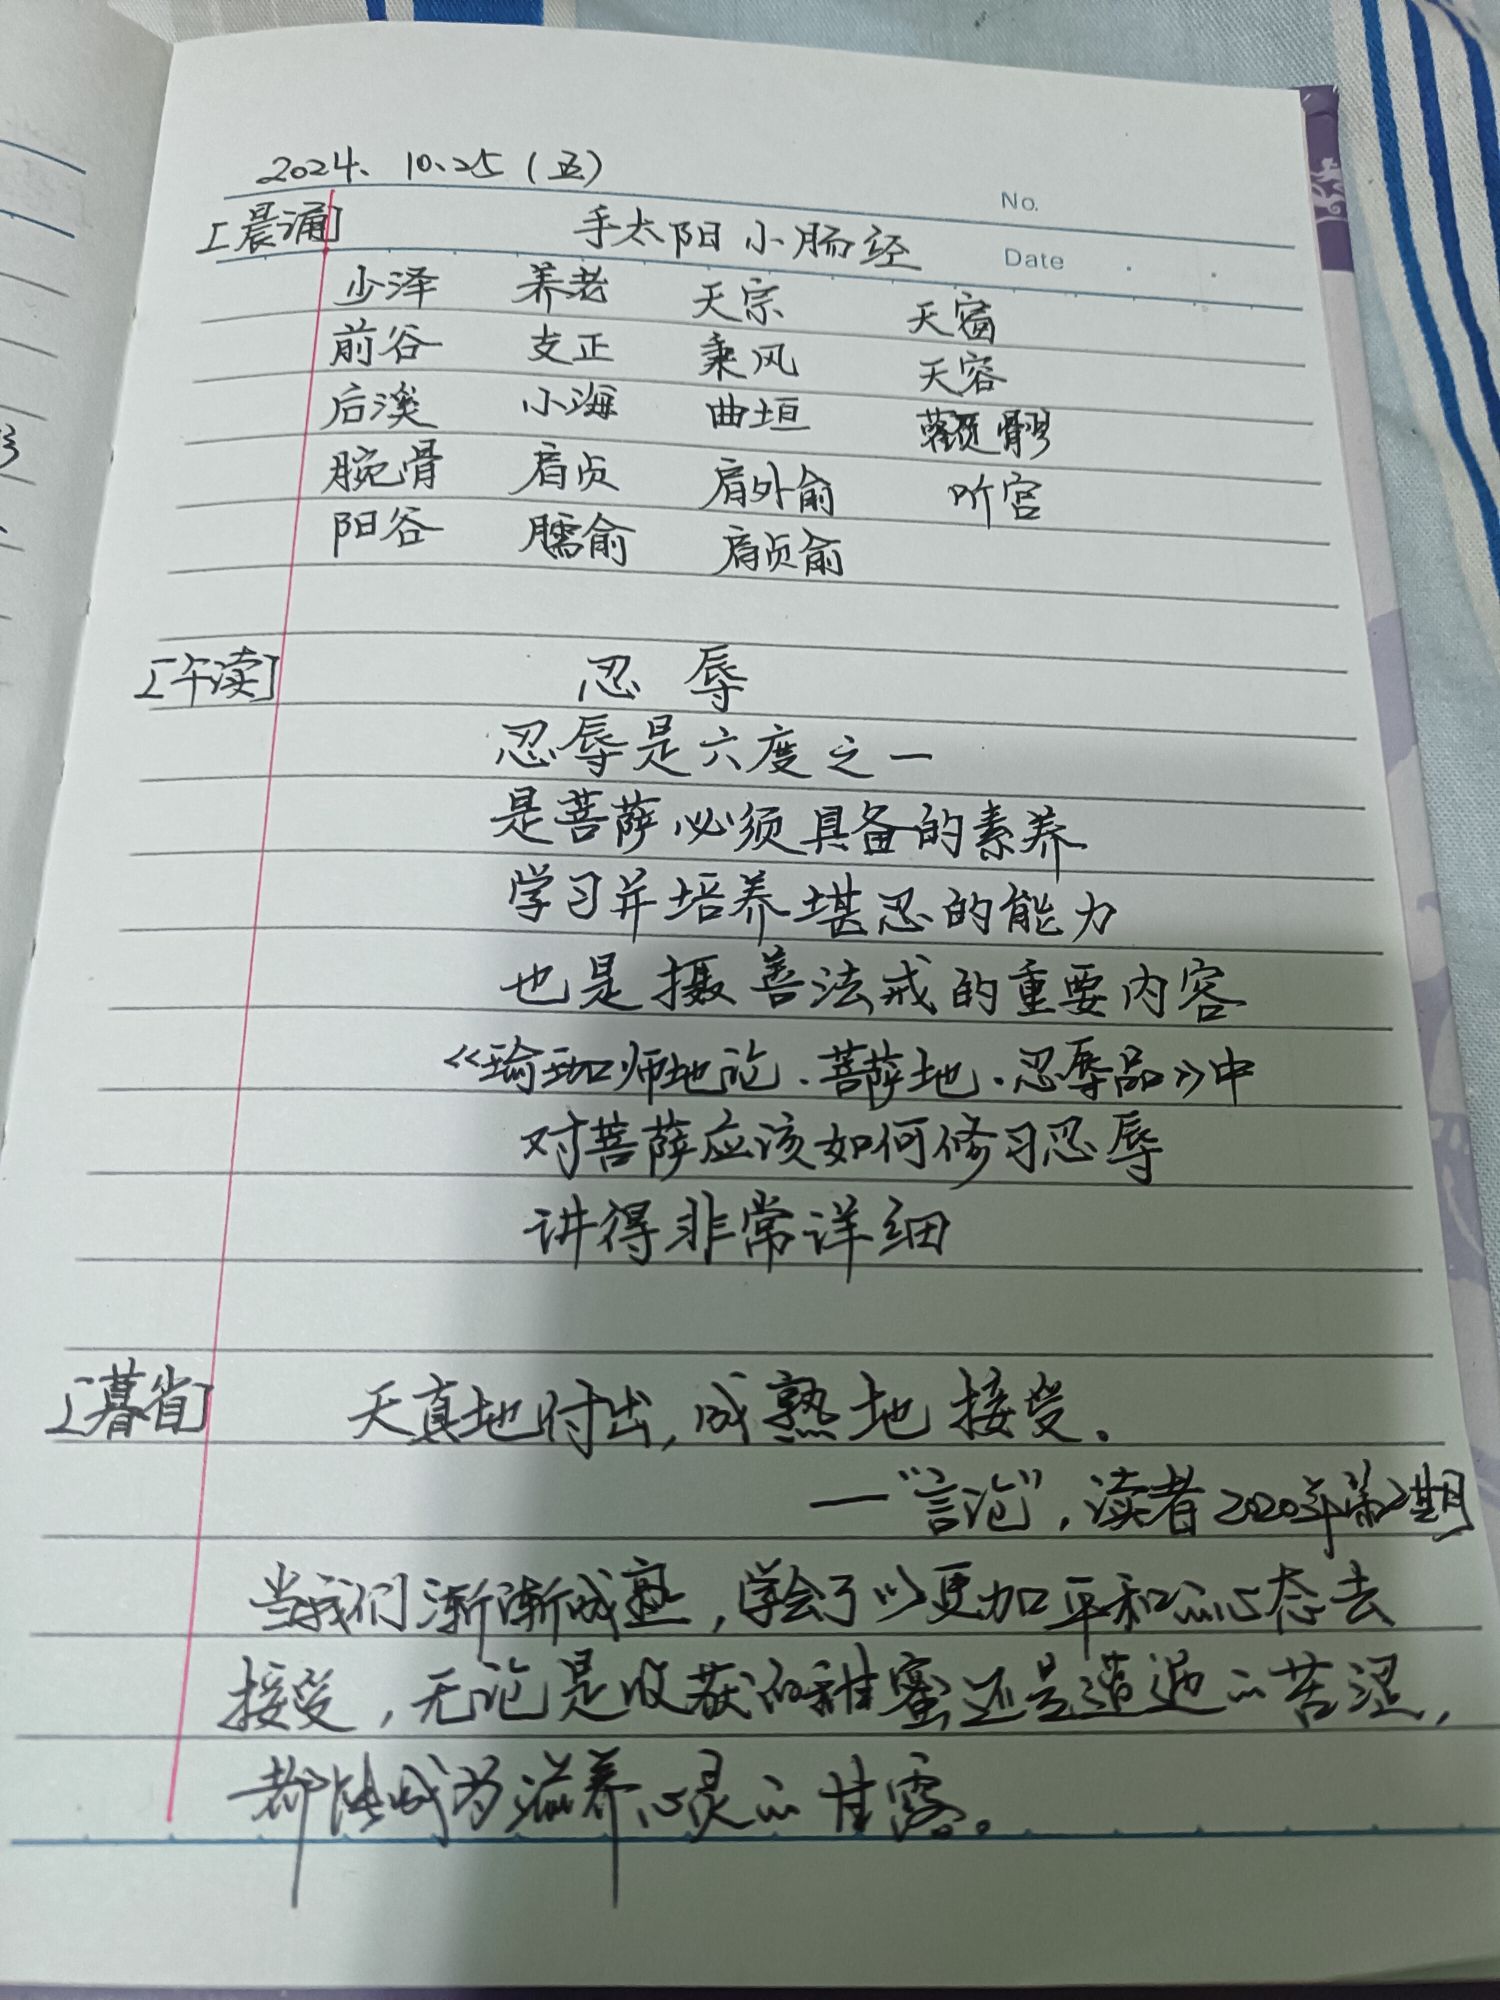 2024. 10.25(五)
No.
[晨诵] 手太阳小肠经
Date
少泽 养老 天宗 天窗
前谷 支正 秉风 天容
后溪 小海 曲垣 颧髎
腕骨 肩贞 肩外俞 听宫
阳谷 臑俞 肩贞俞
[午读] 忍辱
忍辱是六度之一
是菩萨必须具备的素养
学习并培养堪忍的能力
也是摄善法戒的重要内容
《瑜珈师地论·菩萨地·忍辱品》中
对菩萨应该如何修习忍辱
讲得非常详细
[暮省] 天真地付出,成熟地接受.
—"言论",读者2020年第2期
当我们渐渐成熟,学会了以更加平和的心态去
接受,无论是收获的甜蜜还是遭遇的苦涩,
都能成为滋养心灵的甘露。